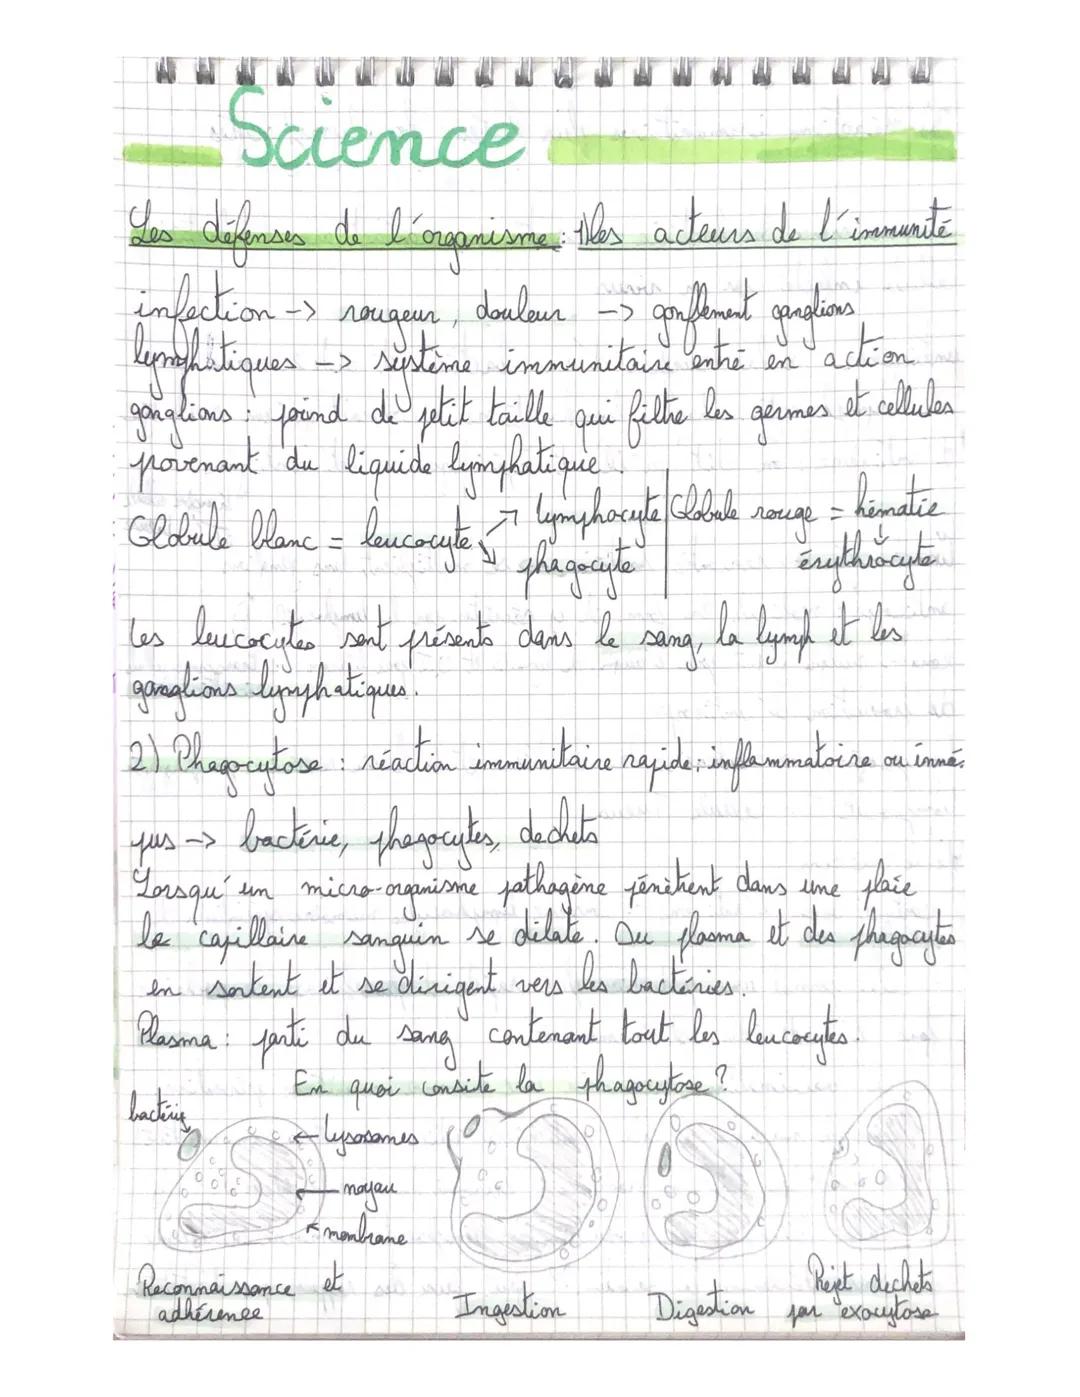 Science
Les défenses de l'organisme : 1) les acteurs de l'immunité
infection -> rougeur, douleur -> gonflement ganglions
lymphatiques -> système immunitaire entre en action
ganglions : poind de petit taille qui filtre les germes et cellules
provenant du liquide lymphatique.
Globule blanc = leucocyte ↗ lymphocyte | Globule rouge = hématie
↘ phagocyte | ↓ érythrocyte
Les leucocytes sont présents dans le sang, la lymph et les
ganglions lymphatiques.
2) Phagocytose : réaction immunitaire rapide : inflammatoire ou inné.
pus -> bactérie, phagocytes, dechets
Lorsqu'un micro-organisme pathogène pénètrent dans une plaie
le capillaire sanguin se dilate. Du plasma et des phagocytes
en sortent et se dirigent vers les bactéries.
Plasma : parti du sang contenant tout les leucocytes.
En quoi consite la phagocytose ?
bactérie
← lysosomes
noyau
membrane
Reconnaissance et
adhérence
Ingestion
Digestion
Rejet dechets
par exocytose